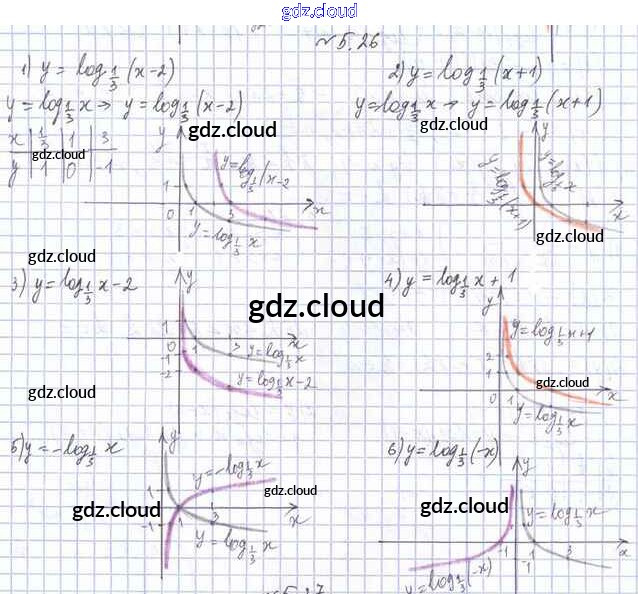 gdz.cloud
№5.26
1) y = log 1/3 (x-2)
y = log 1/3 x → y = log 1/3 (x-2)
x | 1/3 | 1 | 3
y | 1 | 0 | -1
gdz.cloud
gdz.cloud
y
1
y=log 1/3 (x-2
0 1 3 x
y=log 1/3 x
gdz.cloud
2) y = log 1/3 (x+1)
y=log 1/3 x → y = log 1/3 (x+1)
gdz.cloud
y
y=log 1/3 (x+1)
y=log 1/3 x
x
gdz.cloud
3) y = log 1/3 x - 2
y
1
0 1 3 x
-1
-2
y=log 1/3 x
y=log 1/3 x-2
gdz.cloud
gdz.cloud
4) y = log 1/3 x + 1
y
y=log 1/3 x+1
2
1
gdz.cloud
0 1 x
y=log 1/3 x
5) y = -log 1/3 x
y
y=-log 1/3 x
1
gdz.cloud
gdz.cloud
-1 1 3 x
y = log 1/3 x
6) y = log 1/3 (-x)
y
gdz.cloud
y=log 1/3 x
-1 1 3 x
-1
y=log 1/3 (-x)